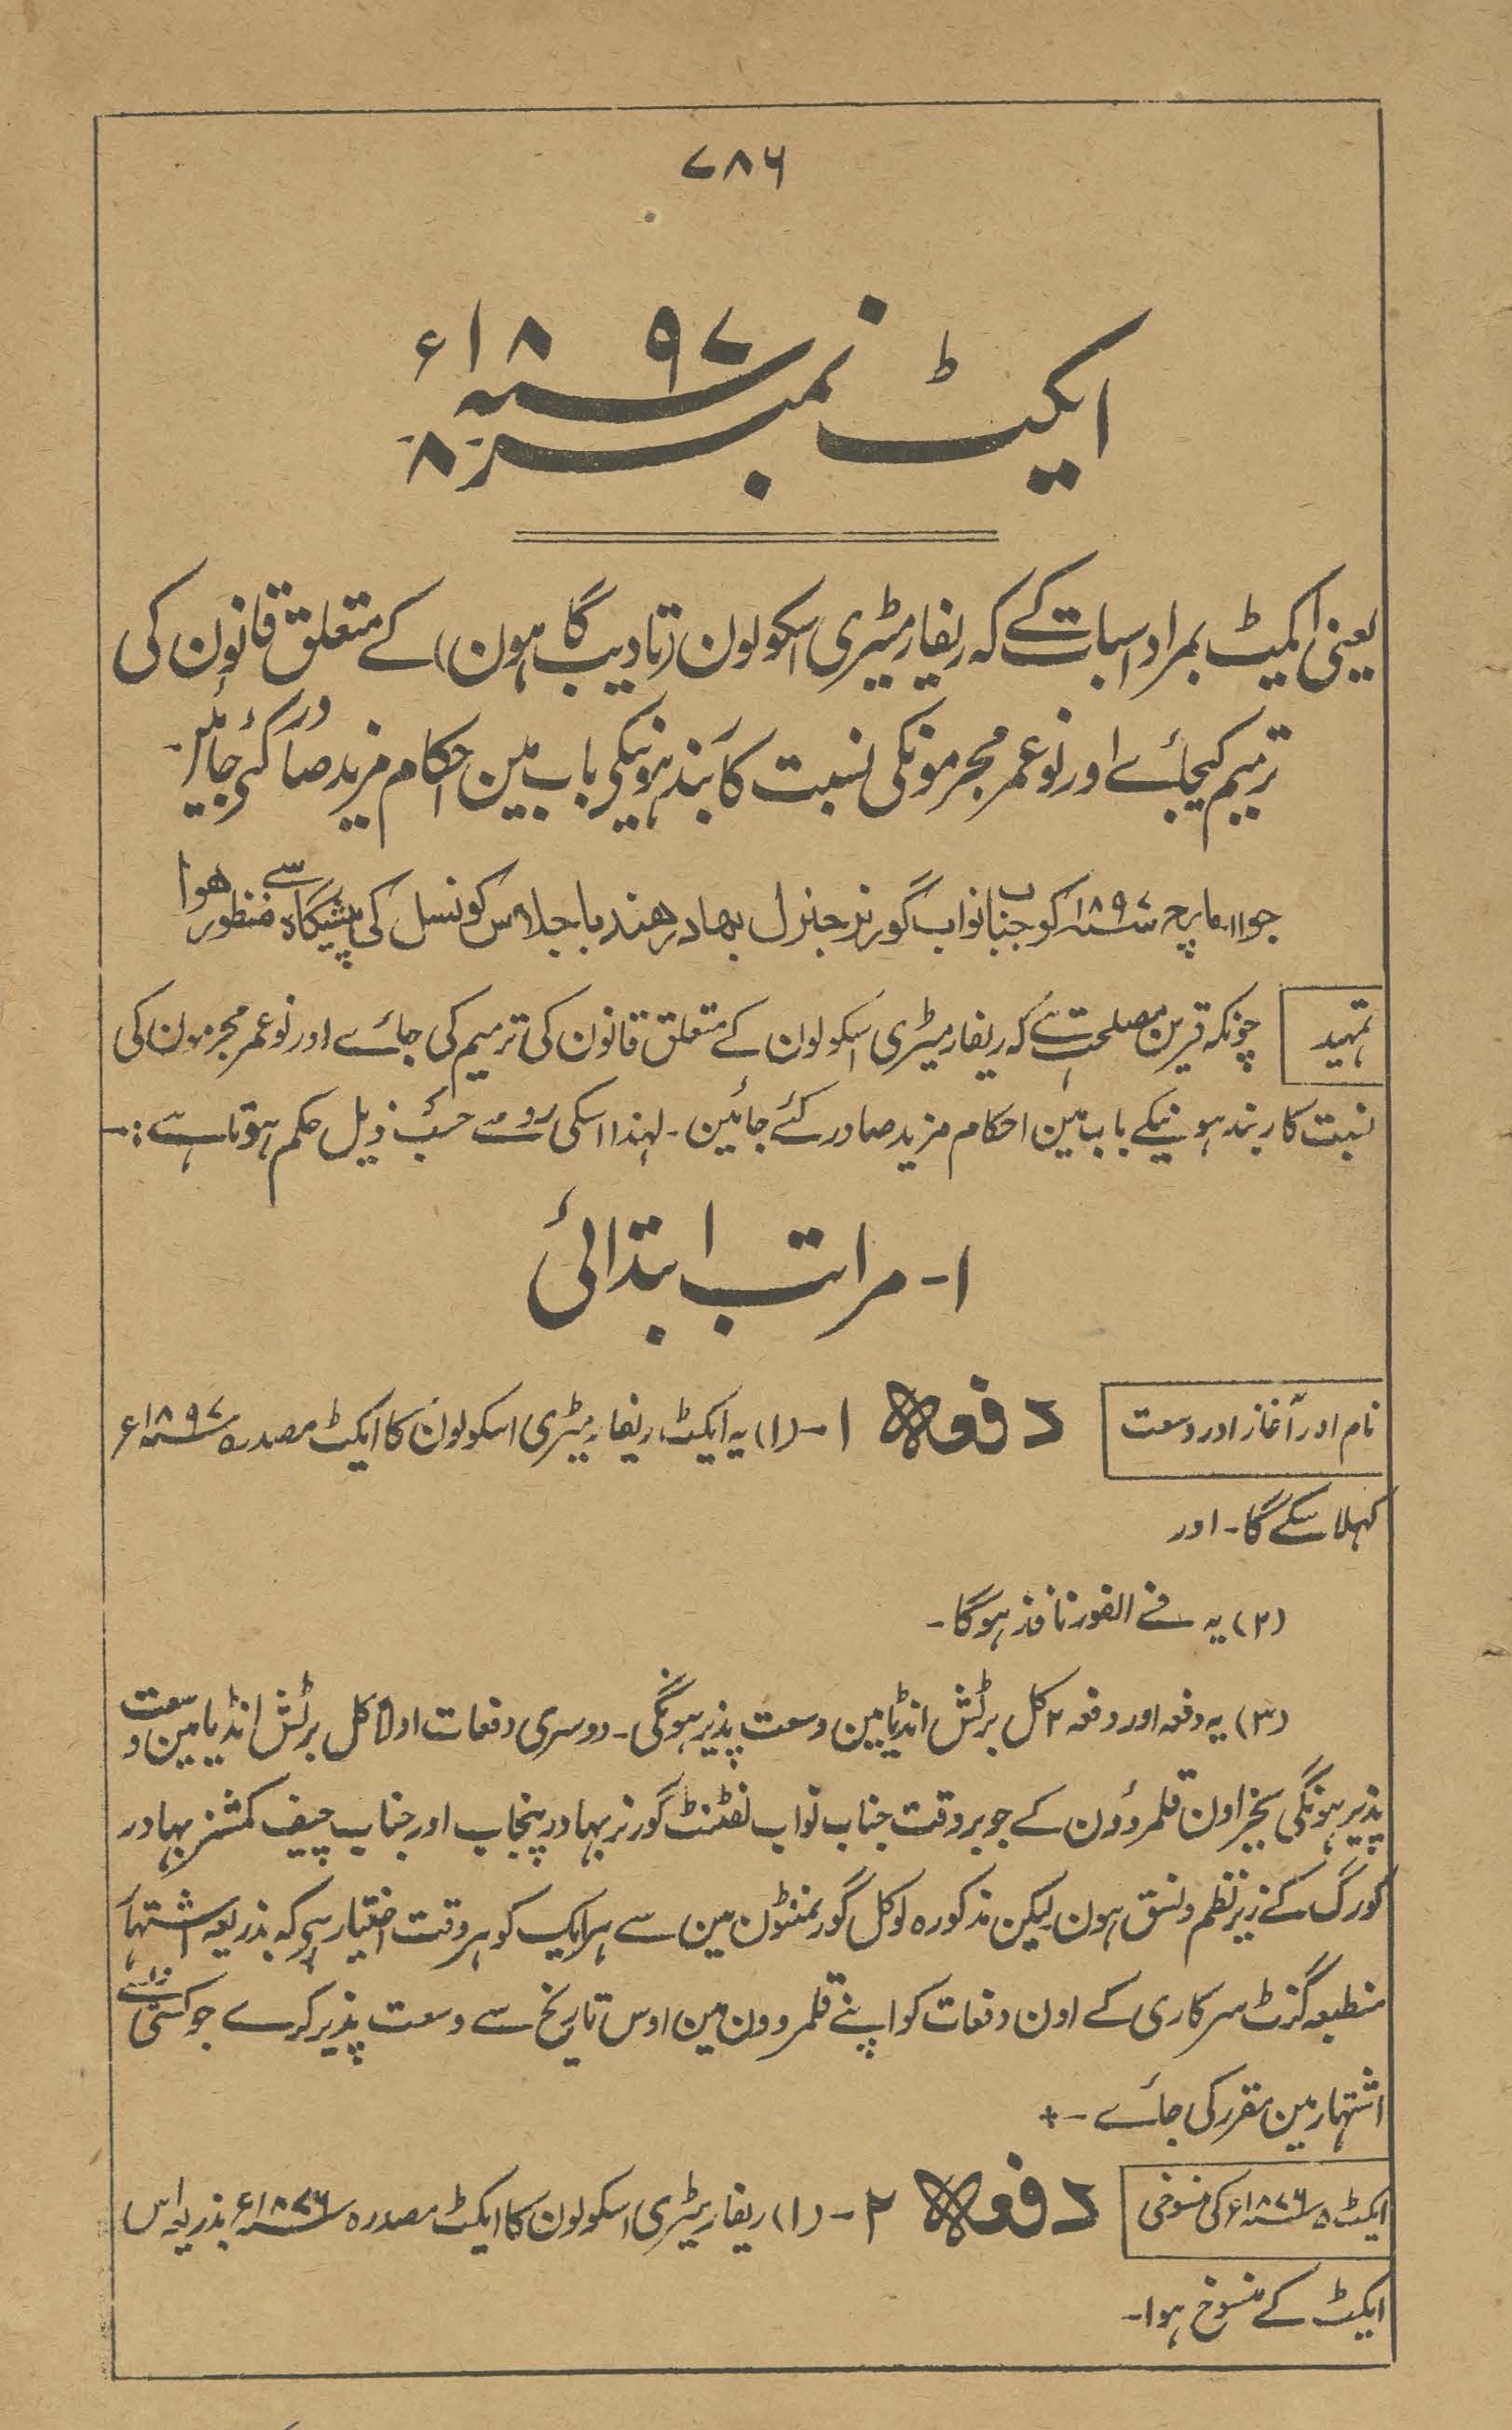 ۷۸۶
ایکٹ نمبر ۸ سنہ ۱۸۹۷ء
یعنی ایکٹ بمراد اسبات کے کہ ریفارمیٹری اسکولون (تادیب گاہون) کے متعلق قانون کی
ترمیم کیجائے اور نوعمر مجرمونکی نسبت کاربند ہونیکی باب مین احکام مزید صادر کئی جائین
جو ۱۱ مارچ سنہ ۱۸۹۷ کو جناب نواب گورنر جنرل بہادر ھند باجلاس کونسل کی پیشگاہ سے منظور ھوا
تمہید
چونکہ قرین مصلحت ہے کہ ریفارمیٹری اسکولون کے متعلق قانون کی ترمیم کی جائے اور نوعمر مجرمون کی
نسبت کاربند ہونیکے باب مین احکام مزید صادر کئے جائین۔ لہذا اسکی روسے حسب ذیل حکم ہوتا ہے :۔
۱۔ مراتب ابتدائی
نام اور آغاز اور وسعت
دفعہ ۱۔ (۱) یہ ایکٹ ریفارمیٹری اسکولون کا ایکٹ مصدرہ سنہ ۱۸۹۷ء
کہلا سکے گا۔ اور
(۲) یہ فے الفور نافذ ہوگا۔
(۳) یہ دفعہ اور دفعہ ۲ کل برٹش انڈیا مین وسعت پذیر ہونگی۔ دوسری دفعات اولاً کل برٹش انڈیا مین وسعت
پذیر ہونگی بجز اون قلمروُون کے جو بروقت جناب نواب لفٹنٹ گورنر بہادر پنجاب اور جناب چیف کمشنر بہادر
کورگ کے زیر نظم ونسق ہون لیکن مذکورہ لوکل گورنمنٹون مین سے ہر ایک کو ہر وقت اختیار ہی کہ بذریعہ اشتہار
منطبعہ گزٹ سرکاری کے اون دفعات کو اپنے قلمروون مین اوس تاریخ سے وسعت پذیر کرے جو کسی ایسے
اشتہار مین مقرر کی جائے۔+
ایکٹ ۵ سنہ ۱۸۷۶ء کی منسوخی
دفعہ ۲۔ (۱) ریفارمیٹری اسکولون کا ایکٹ مصدرہ سنہ ۱۸۷۶ء بذریعہ اس
ایکٹ کے منسوخ ہوا۔